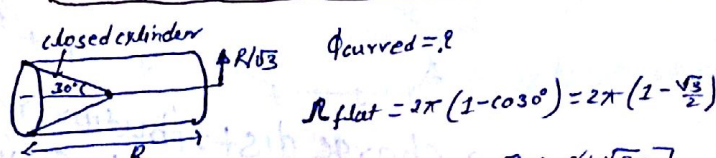 closed cylinder
R/√3
ϕcurved = ?
30°
Ω flat = 2π (1-cos30°) = 2π (1 - √3/2)
R